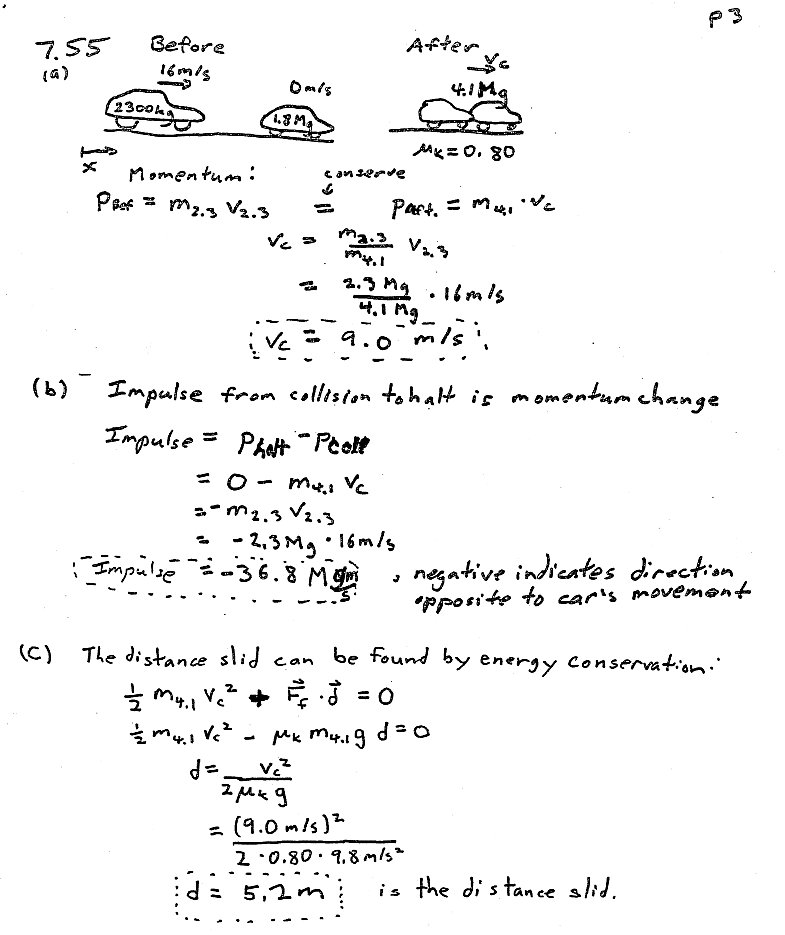 p 3
7.55 Before After
(a) 16m/s 0m/s Vc
2300kg 1.8Mg 4.1Mg
μk=0.80
x
Momentum: conserve
PBef = m2.3 V2.3 = Paft. = m4.1 · Vc
Vc = m2.3/m4.1 V2.3
= 2.3 Mg/4.1 Mg · 16m/s
Vc = 9.0 m/s
(b) Impulse from collision to halt is momentum change
Impulse = Phalt - Pcoll
= 0 - m4.1 Vc
= -m2.3 V2.3
= -2.3Mg · 16m/s
Impulse = -36.8 Mgm/s , negative indicates direction
opposite to car's movement
(C) The distance slid can be found by energy conservation:
1/2 m4.1 Vc² + Ff · d = 0
1/2 m4.1 Vc² - μk m4.1 g d = 0
d = Vc²/2μk g
= (9.0 m/s)²/2 · 0.80 · 9.8m/s²
d = 5.2m is the distance slid.